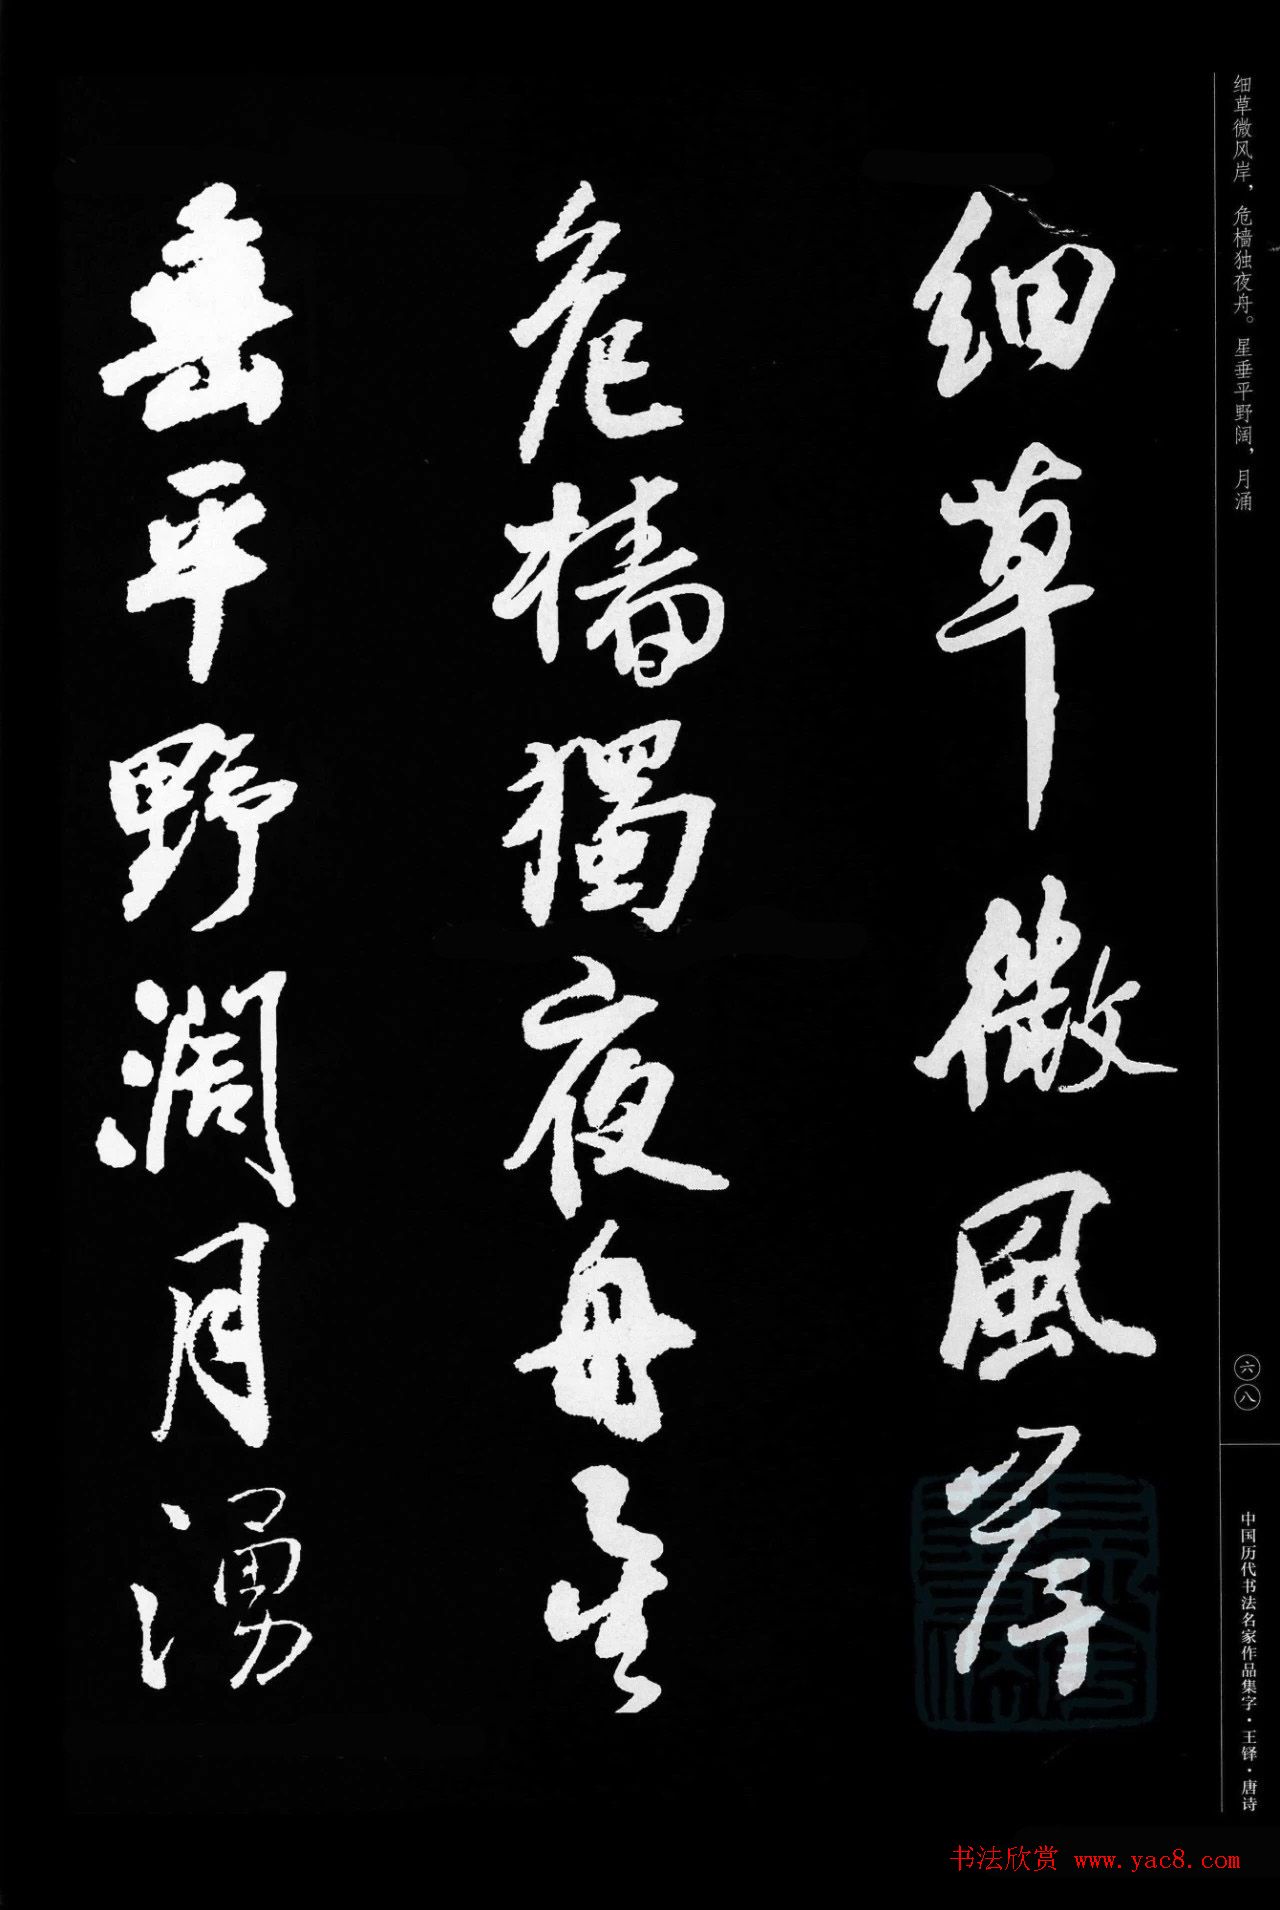 细草微风岸，危樯独夜舟。星垂平野阔，月涌
細草微風岸
危檣獨夜舟星
垂平野濶月湧
六八
中国历代书法名家作品集字·王铎·唐诗
书法欣赏 www.yac8.com